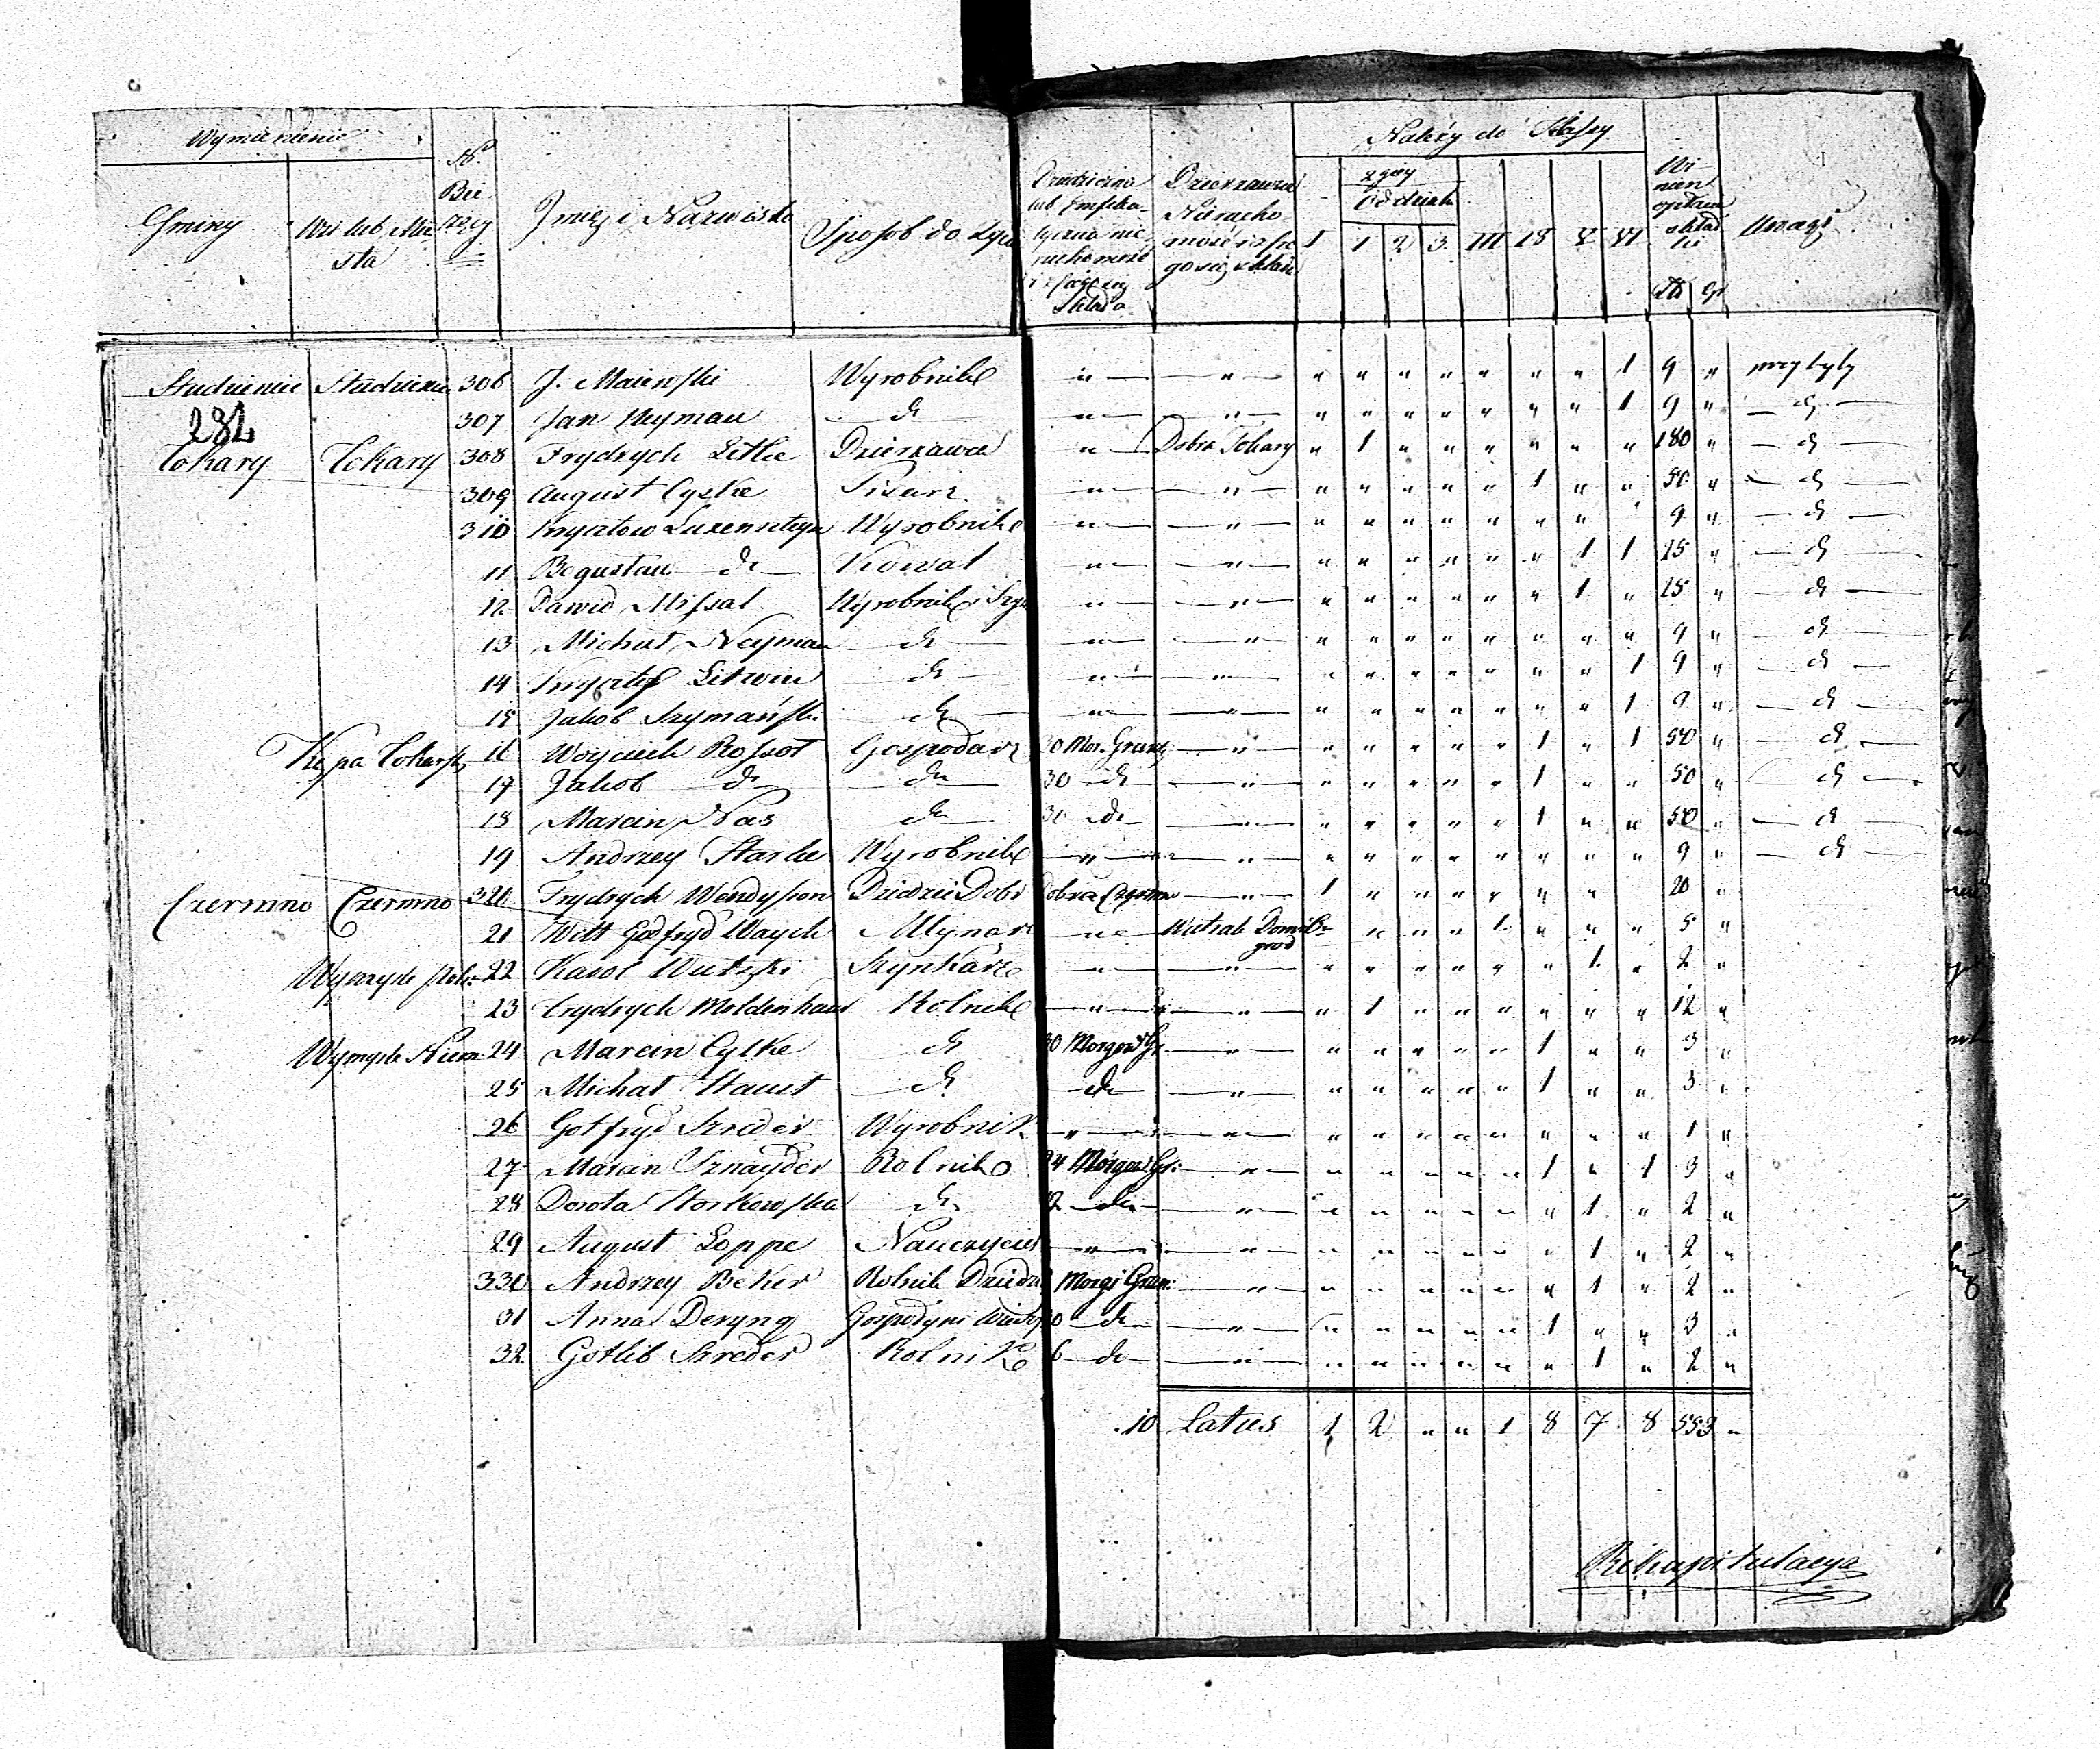 Wymienienie
Gminy
Wsi lub Miasta
Nr. Bierzący
Imię i Nazwisko
Sposob do życia
Dziedziczna lub Emfiteutyczna nieruchomość i z czego się składa
Dzierzawna Nieruchomość i z czego się składa
Należy do Klassy
I
2giey Oddziału
1 2 3 III IV V VI
Winien opłacać składki
Złł gr
Uwagi
Studzieniec Studzieniec 306 J. Maienski Wyrobnik " " " " " " " " " 1 9 " przybyły
282
307 Jan Neyman do " " " " " " " " " 1 9 " do
Tokary Tokary 308 Frydrych Litke Dzierzawca " Dobra Tokary " 1 " " " " " " 180 " do
309 August Cyske Pisarz " " " " " " " 1 " " 50 " do
310 Luxenszteyn Wyrobnik " " " " " " " " " 9 " do
11 Bogusław do Kowal " " " " " " " " 1 1 25 " do
12 Dawid Missal Wyrobnik i " " " " " " " " 1 " 25 " do
13 Michał Neyman do " " " " " " " " " " 9 " do
14 Krysztof Litwin do " " " " " " " " " 1 9 " do
15 Jakob Szymański do " " " " " " " " " 1 9 " do
Kępa Tokarska 16 Woyciech Rossot Gospodarz 30 Mor. Grunt " " " " " " 1 " 1 50 " do
17 Jakob do do 30 do " " " " " " 1 " " 50 " do
18 Marcin Nas do 30 do " " " " " " 1 " " 50 " do
19 Andrzey Starke Wyrobnik " " " " " " " " " " 9 " do
Czermno Czermno 320 Frydrych Wendyson Dziedzic Dobr Dobra Czermno " 1 " " " " " " 20 "
21 Wilt Godfryd Waych Młynarz " Wiatrak " " " 1 " " " 5 "
Wymyśle Pols. 22 Karol Wutzki Szynkarz " " " " " " " " 1 " 2 "
23 Frydrych Moldenhaur Rolnik " " " 1 " " " " " " 12 "
Wymyśle Niem. 24 Marcin Cylke do 30 Morgow Gr. " " " " " " 1 " " 3 "
25 Michał Staust do do " " " " " " 1 " " 3 "
26 Gotfryd Szreder Wyrobnik " " " " " " " " " " 1 "
27 Marcin Sznayder Rolnik 24 Morgow Gr. " " " " " " 1 " 1 3 "
28 Dorota do 12 do " " " " " " " 1 " 2 "
29 August Loppe Nauczyciel " " " " " " " " 1 " 2 "
330 Andrzey Beker Rolnik Morgi Grun. " " " " " " " 1 " 2 "
31 Anna Deryng Gospodyni Wdowa do " " " " " " 1 " " 3 "
32 Gotlib Szreder Rolnik 6 do " " " " " " " 1 " 2 "
10 Latus 1 2 " " 1 8 7 8 553 "
Rekapitulacya